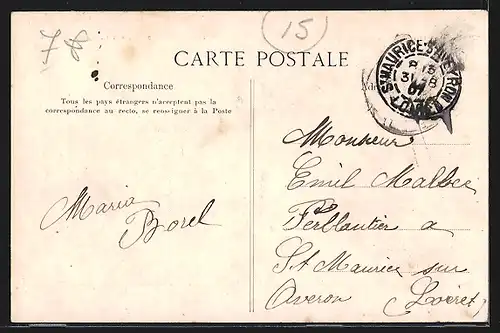 78
15
CARTE POSTALE
Correspondance
Tous les pays étrangers n'acceptent pas la
correspondance au recto, se renseigner à la Poste
ST MAURICE-S-AVEYRON
LOIRET
Monsieur
Emil Malbec
Ferblantier a
St Maurice sur
Averon Loiret
Maria
Borel